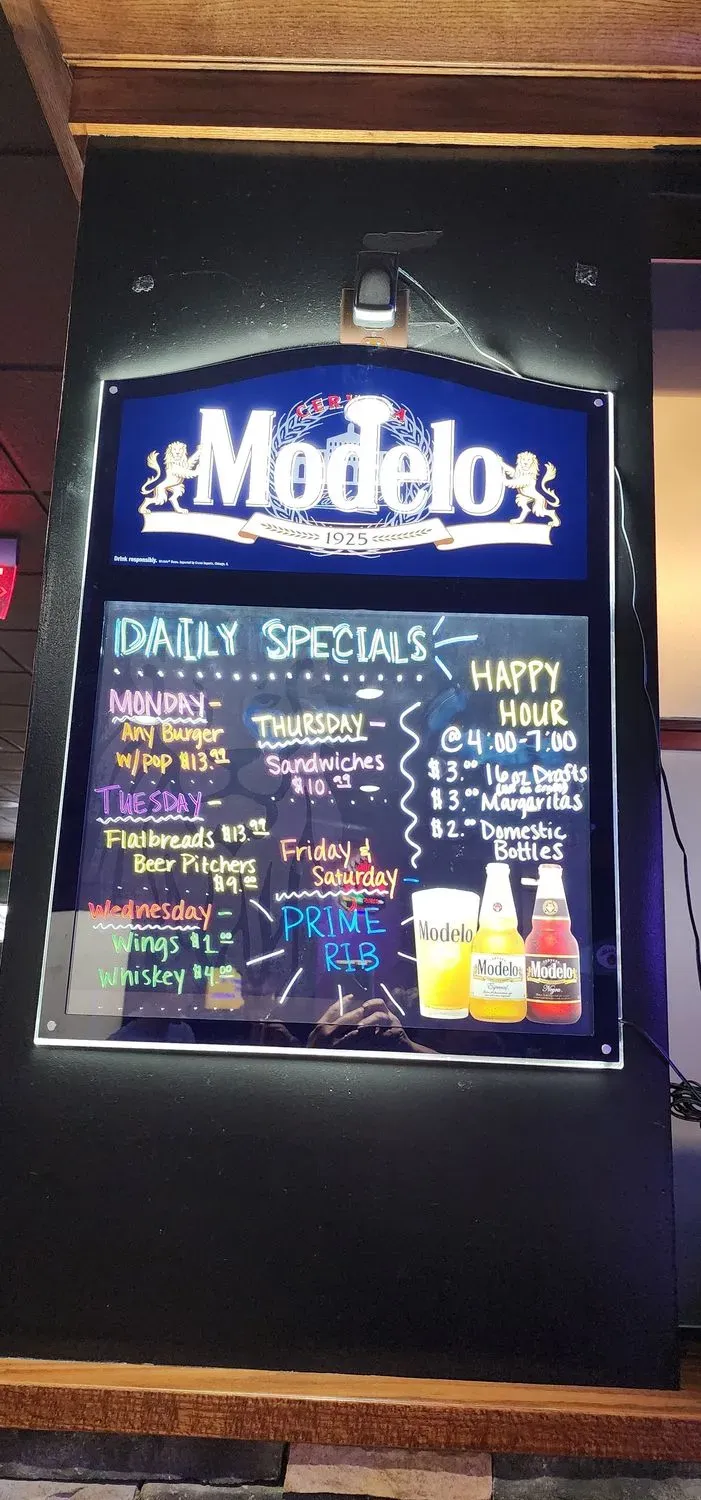 CERVEZA
Modelo
1925
Drink responsibly.
DAILY SPECIALS
MONDAY -
Any Burger
w/pop $13.99
TUESDAY -
Flatbreads $13.99
Beer Pitchers
$9.00
Wednesday -
Wings $1.00
Whiskey $4.00
THURSDAY -
Sandwiches
$10.99
Friday &
Saturday -
PRIME
RIB
HAPPY
HOUR
@ 4:00-7:00
$3.00 16oz Drafts
$3.00 Margaritas
$2.00 Domestic
Bottles
Modelo
Modelo
Especial
Modelo
Negra